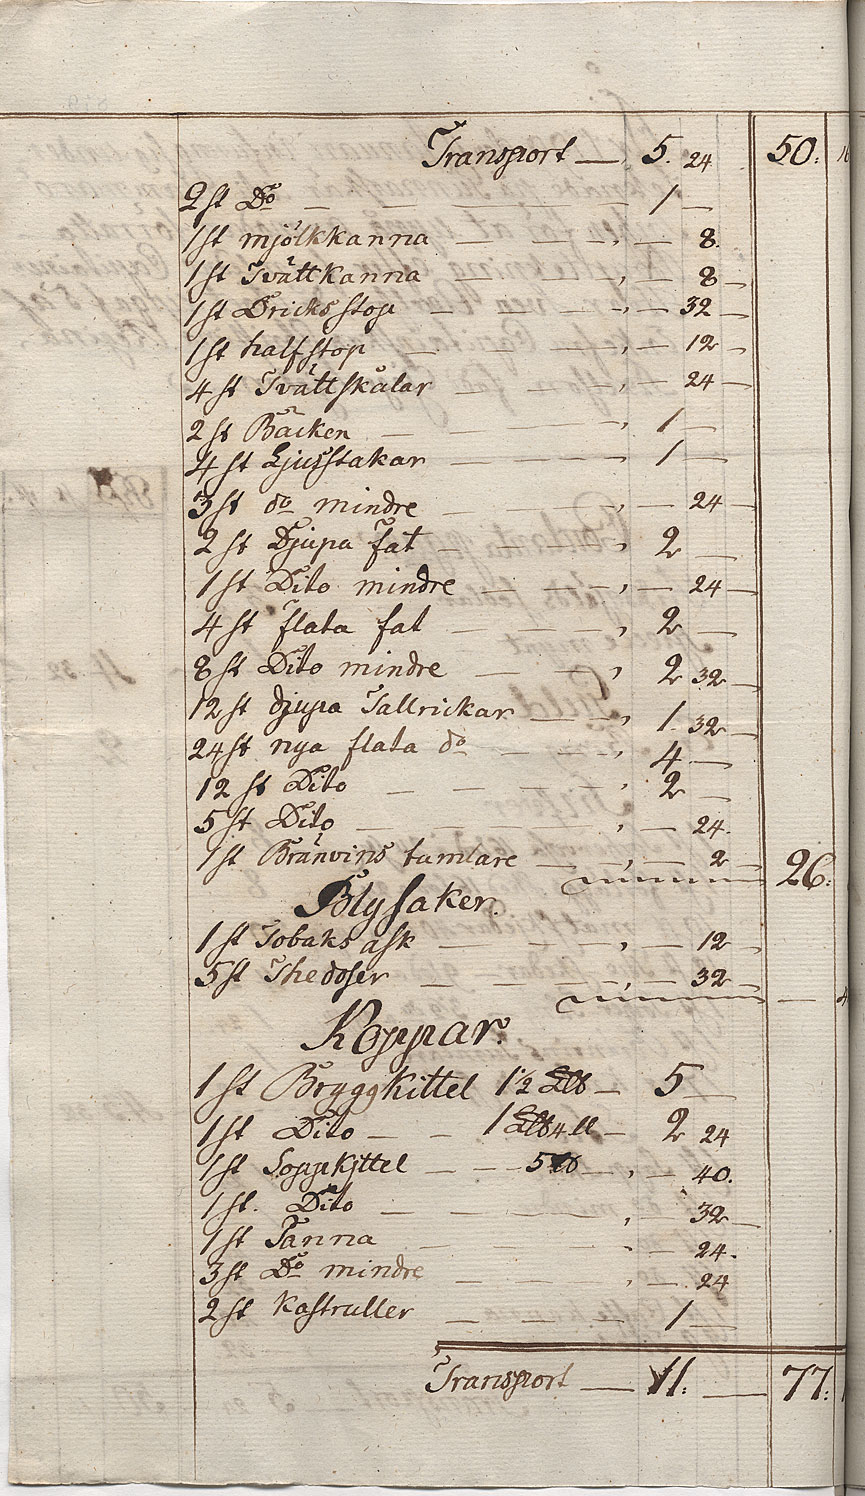 Transport — 5. 24 50: 16
2 st Do — 1 —
1 st mjölkkanna — 8.
1 st Tvättkanna — 8 —
1 st Dricksstop — 32 —
1 st halfstop — 12 —
4 st Tvättskålar — 24 —
2 st Bäcken — 1 —
4 st Ljusstakar — 1 —
3 st do mindre — 24 —
2 st Djupa Fat — 2 —
1 st Dito mindre — 24 —
4 st flata fat — 2 —
8 st Dito mindre — 2 32 —
12 st djupa Tallrickar — 1. 32 —
24 st nya flata do — 4 —
12 st Dito — 2 —
5 st Dito — 24.
1 st Bränvins tumlare — 2 — 26:
Blysaker.
1 st Tobaks ask — 12 —
5 st Thedoser — 32 — — 4
Koppar.
1 st Bryggkittel 1½ L℔ — 5 —
1 st Dito — 1 L℔ 4 ℔ — 2 24
1 st Soppkjttel — 5 ℔ — 40.
1 st. Dito — 32 —
1 st Panna — 24.
3 st Do mindre — 24
2 st Kastruller — 1 —
Transport — 11: — 77: